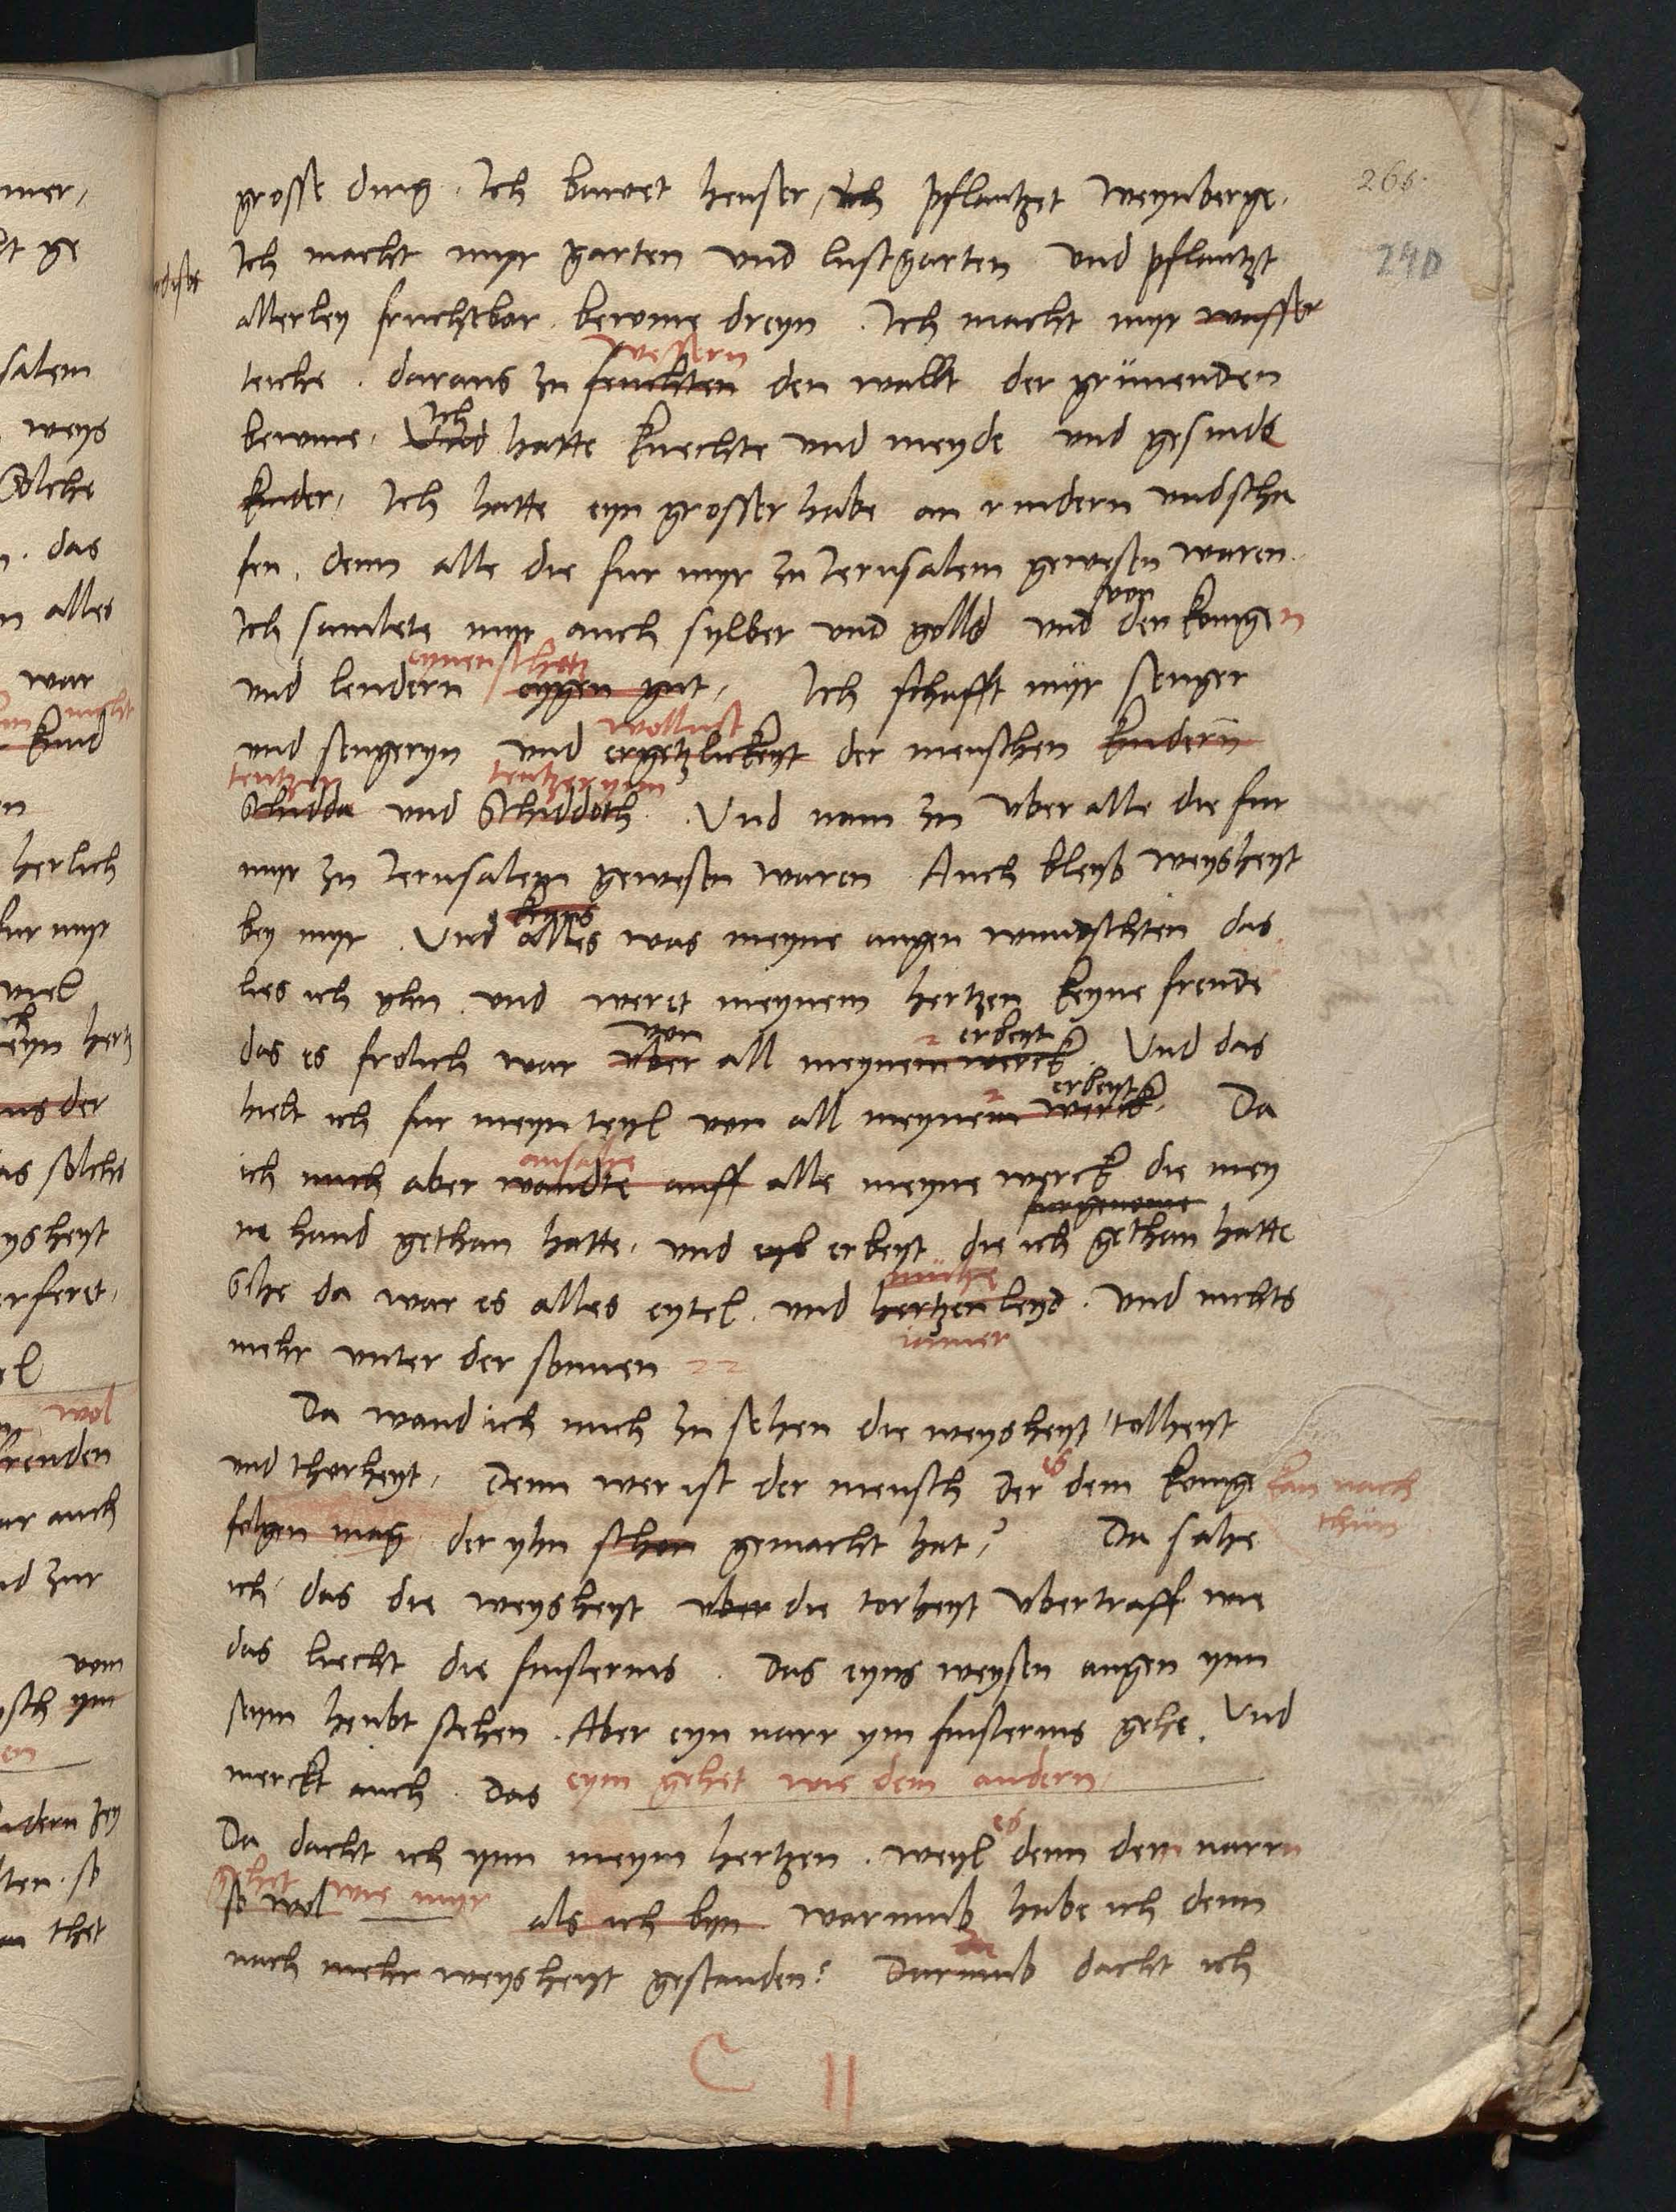 266.
240
grosse ding. Ich bawet heuser, ich pflantzet weynberge.
Ich macht myr garten und lustgarten und pflantzt
allerley fruchtbar bewme dreyn. Ich macht myr wasser
wessern
teiche. daraus zu feuchten den wallt der grünenden
Ich
bewme. Und hatte knechte und meyde und gesinde
kinder, Ich hatte eyn grosser habe an rindern und scha
fen. denn alle die fur myr zu Jerusalem gewesen waren.
von
Ich samlete myr auch sylber und golld und den konigen
eynen schatz
und lendern eygen gut, Ich schafft myr senger
wollust
und sengeryn und ergetzlickeyt der menschen kindern
tentzer tentzerynn
Schidda und Schiddoth. Und nam zu uber alle die fur
myr zu Jerusalem gewesen waren Auch bleyb weysheyt
bey myr. Und alles was meyne augen wundschten das
lies ich yhn und weret meynem hertzen keyne freude
von erbeyt
das es frolich war uber all meynem werck. Und das
erbeyt
hielt ich fur meyn teyl von all meynem werck. Da
ansahe
ich mich aber wandte auff alle meyne werck die mey
furgenome
ne hand gethan hatte. und erbeyt die ich gethan hatte
mühe
Sihe da war es alles eytel. und hertzen leyd. und nichts
iamer
mehr unter der sonnen
Da wand ich mich zu sehen die weysheyt, tollheyt
es
und thorheyt, Denn wer ist der mensch der dem konige kan nach
thun
folgen mag der yhn schon gemacht hat? Da sahe
ich das die weysheyt uber die torheyt ubertraff wie
das liecht die finsternis. Das eyns weysen augen ynn
seym heubt stehen. Aber eyn narr ym finsternis gehe. Und
merckt auch das eym gehet wie dem andern
es
Da dacht ich ynn meym hertzen. weyl denn dem narrn
gehet wie myr
so wol als ich byn warumb habe ich denn
nach mehr weysheyt gestanden? Darumb dacht ich